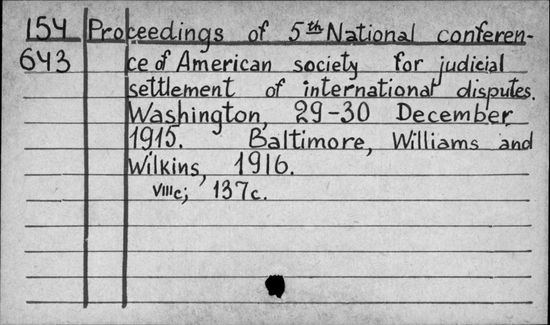 154 Proceedings of 5th National conferen-
643 ce of American society for judicial
settlement of international disputes.
Washington, 29-30 December
1915. Baltimore, Williams and
Wilkins, 1916.
VIIIc; 137c.